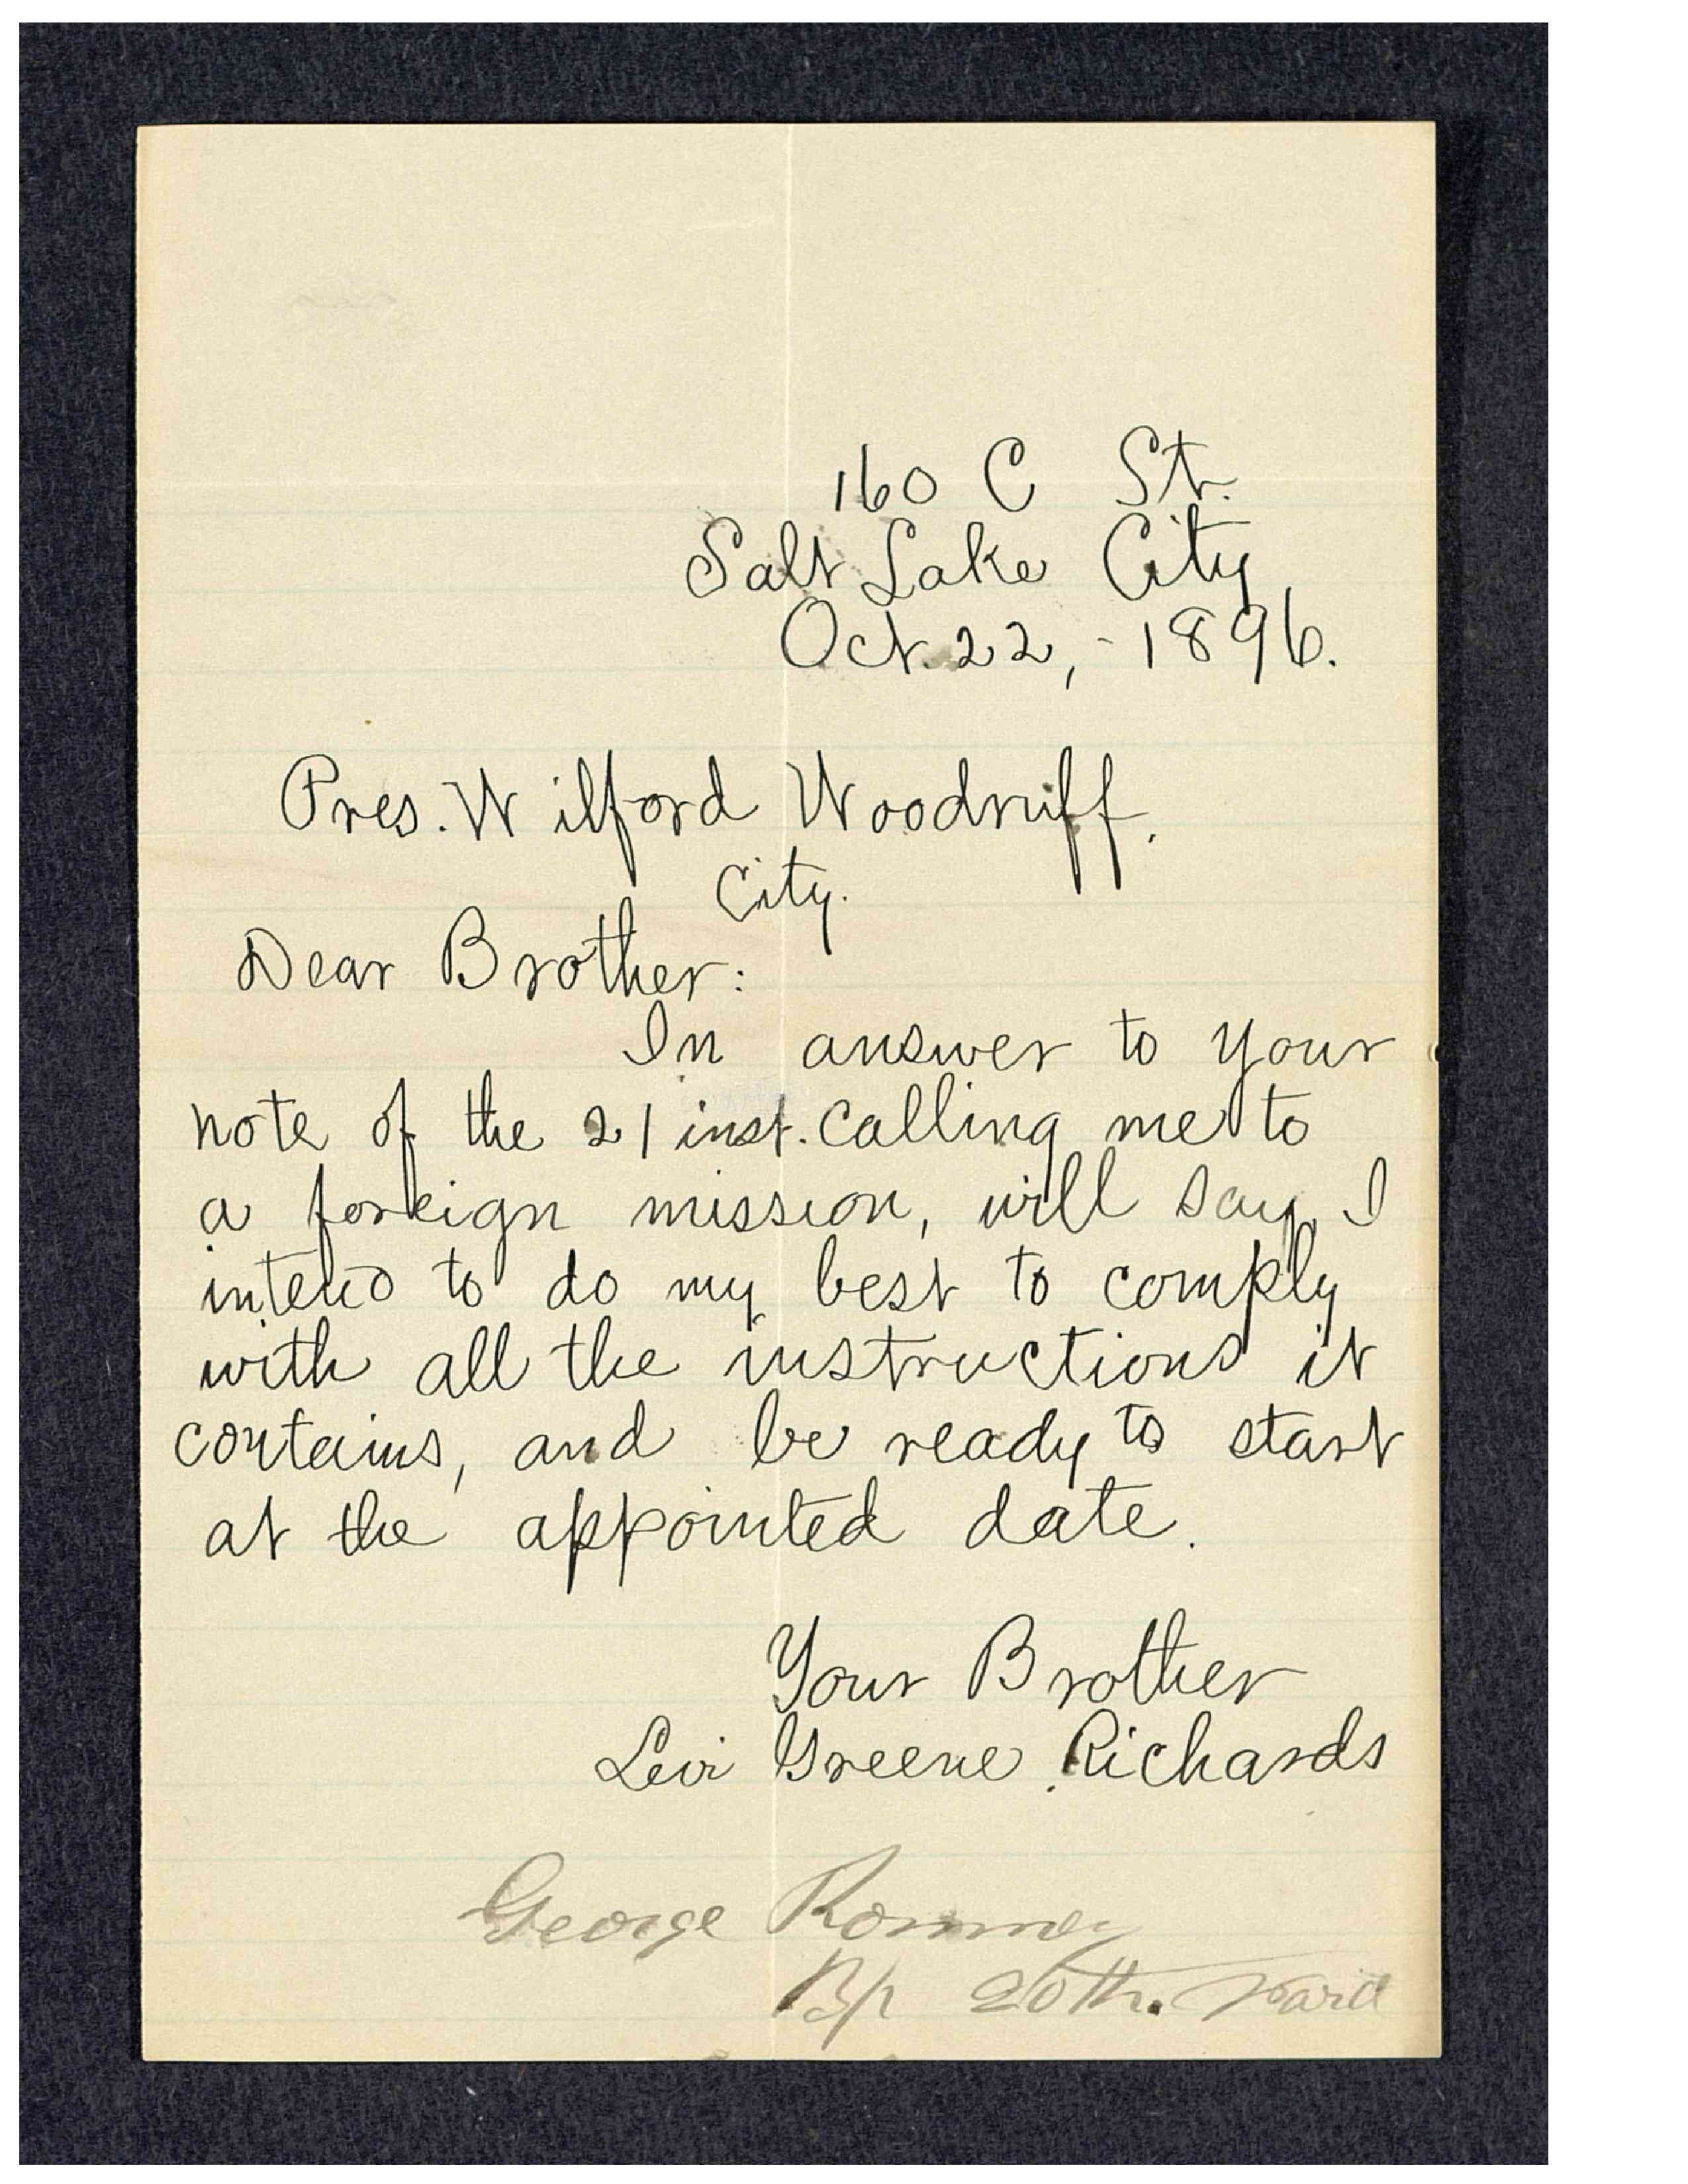 160 C St.
Salt Lake City
Oct. 22, - 1896.
Pres. Wilford Woodruff.
City.
Dear Brother:
In answer to your
note of the 21 inst. calling me to
a foreign mission, will say, I
intend to do my best to comply
with all the instructions it
contains, and be ready to start
at the appointed date.
Your Brother
Levi Greene Richards
George Romney
Bp 20th. Ward